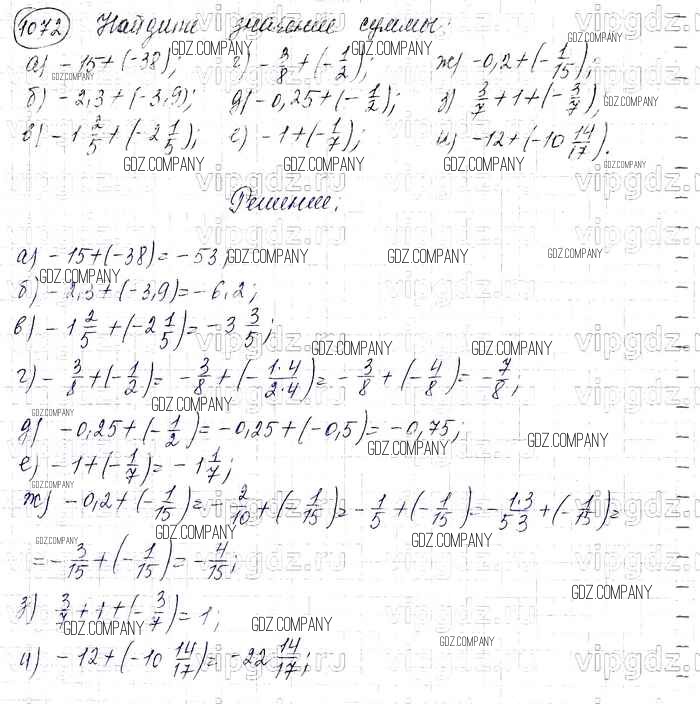 1072 Найдите значение суммы:
а) -15+(-38); г) -3/8+(-1/2); ж) -0,2+(-1/15);
б) -2,3+(-3,9); д) -0,25+(-1/2); з) 3/7+1+(-3/7);
в) -1 2/5+(-2 1/5); е) -1+(-1/7); и) -12+(-10 14/17).
Решение:
а) -15+(-38)=-53;
б) -2,3+(-3,9)=-6,2;
в) -1 2/5+(-2 1/5)=-3 3/5;
г) -3/8+(-1/2)= -3/8+(-1·4/2·4)=-3/8+(-4/8)=-7/8;
д) -0,25+(-1/2)=-0,25+(-0,5)=-0,75;
е) -1+(-1/7)=-1 1/7;
ж) -0,2+(-1/15)=-2/10+(-1/15)=-1/5+(-1/15)=-1·3/5·3+(-1/15)=
=-3/15+(-1/15)=-4/15;
з) 3/7+1+(-3/7)=1;
и) -12+(-10 14/17)=-22 14/17;
GDZ.COMPANY
vipgdz.ru